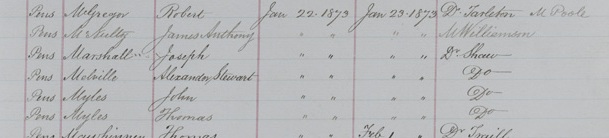 Pens McGregor Robert Jan 22. 1873 Jan 23. 1873 Dr Tarleton M Poole
Pens McNulty James Anthony " " " " M Williamson
Pens Marshall Joseph " " " " Dr Shaw
Pens Melville Alexander Stewart " " " " Do
Pens Myles John " " " " Do
Pens Myles Thomas " " " " Do
Pens Mawhinney Thomas " " Feb 1 " Dr Traill